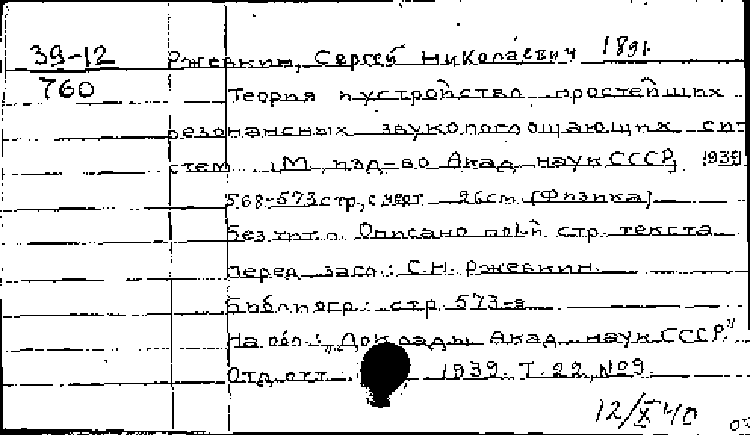 39-12
760
Ржевкин, Сергей Николаевич 1891
Теория и устройство простейших
резонансных звукопоглощающих сис
тем. [М, изд-во Акад. наук СССР, 1939]
568-573 стр, с черт. 26 см. [Физика]
Без тит. л. Описано по 1-й стр. текста
Перед загл.: С.Н. Ржевкин.
Библиогр.: стр. 573-
На обл.: „Доклады Акад. наук СССР."
Отд. отт. 1939. Т. 22, №9.
12/X 40